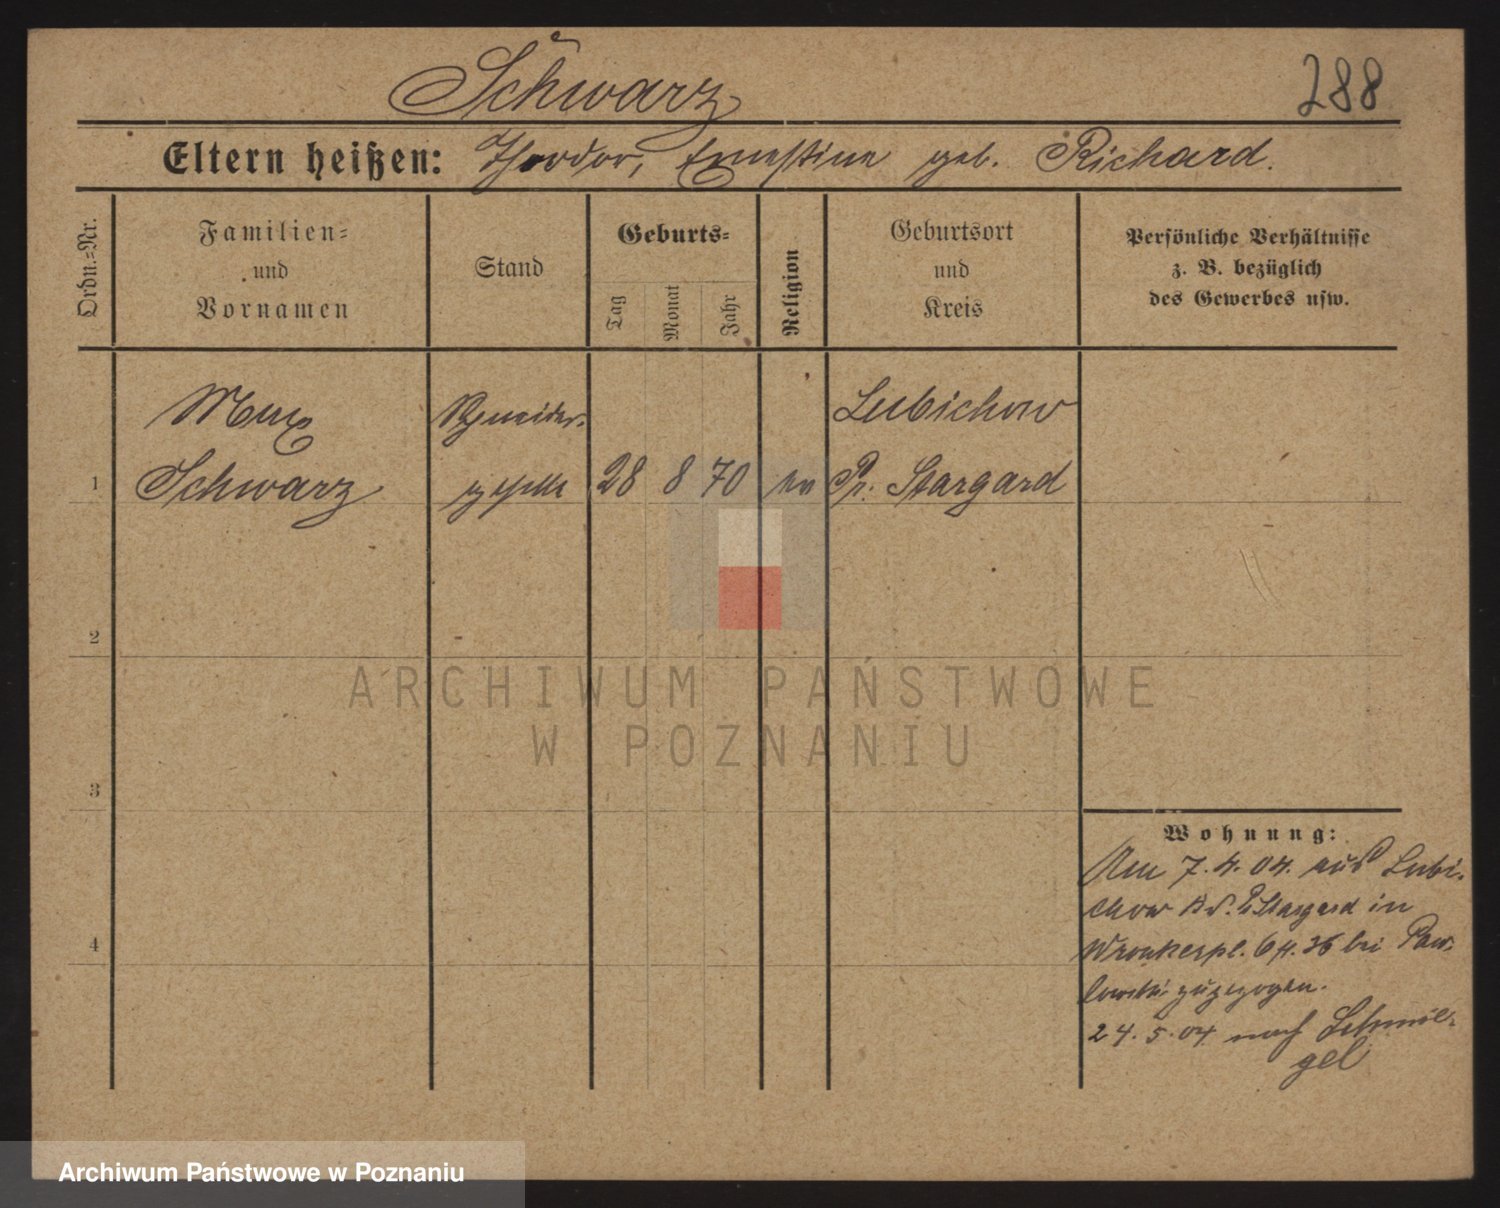 Schwarz
288
Eltern heißen: Theodor, Ernestine geb. Richard.
Ordn.-Nr.
Familien-
und
Vornamen
Stand
Geburts-
Tag
Monat
Jahr
Religion
Geburtsort
und
Kreis
Persönliche Verhältnisse
z. B. bezüglich
des Gewerbes usw.
Max
Schwarz
Schneider-
geselle
28 8 70 ev
Lubichow
Pr. Stargard
1
2
3
4
Wohnung:
Am 7.4.04. aus Lubi-
chow Kr. Pr Stargard in
Wronkerpl. 6 bei Paw-
lowski zugezogen.
24.5.04 nach Schmie-
gel
ARCHIWUM PAŃSTWOWE
W POZNANIU
Archiwum Państwowe w Poznaniu